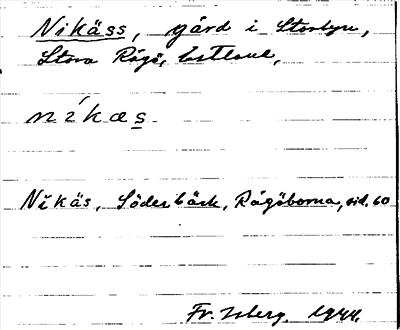 Nikäss, gård i Storbyn,
Stora Rågö, Estland,
níkæs
Nikäs, Söderbäck, Rågöborna, sid. 60
Fr. Isberg. 1944.